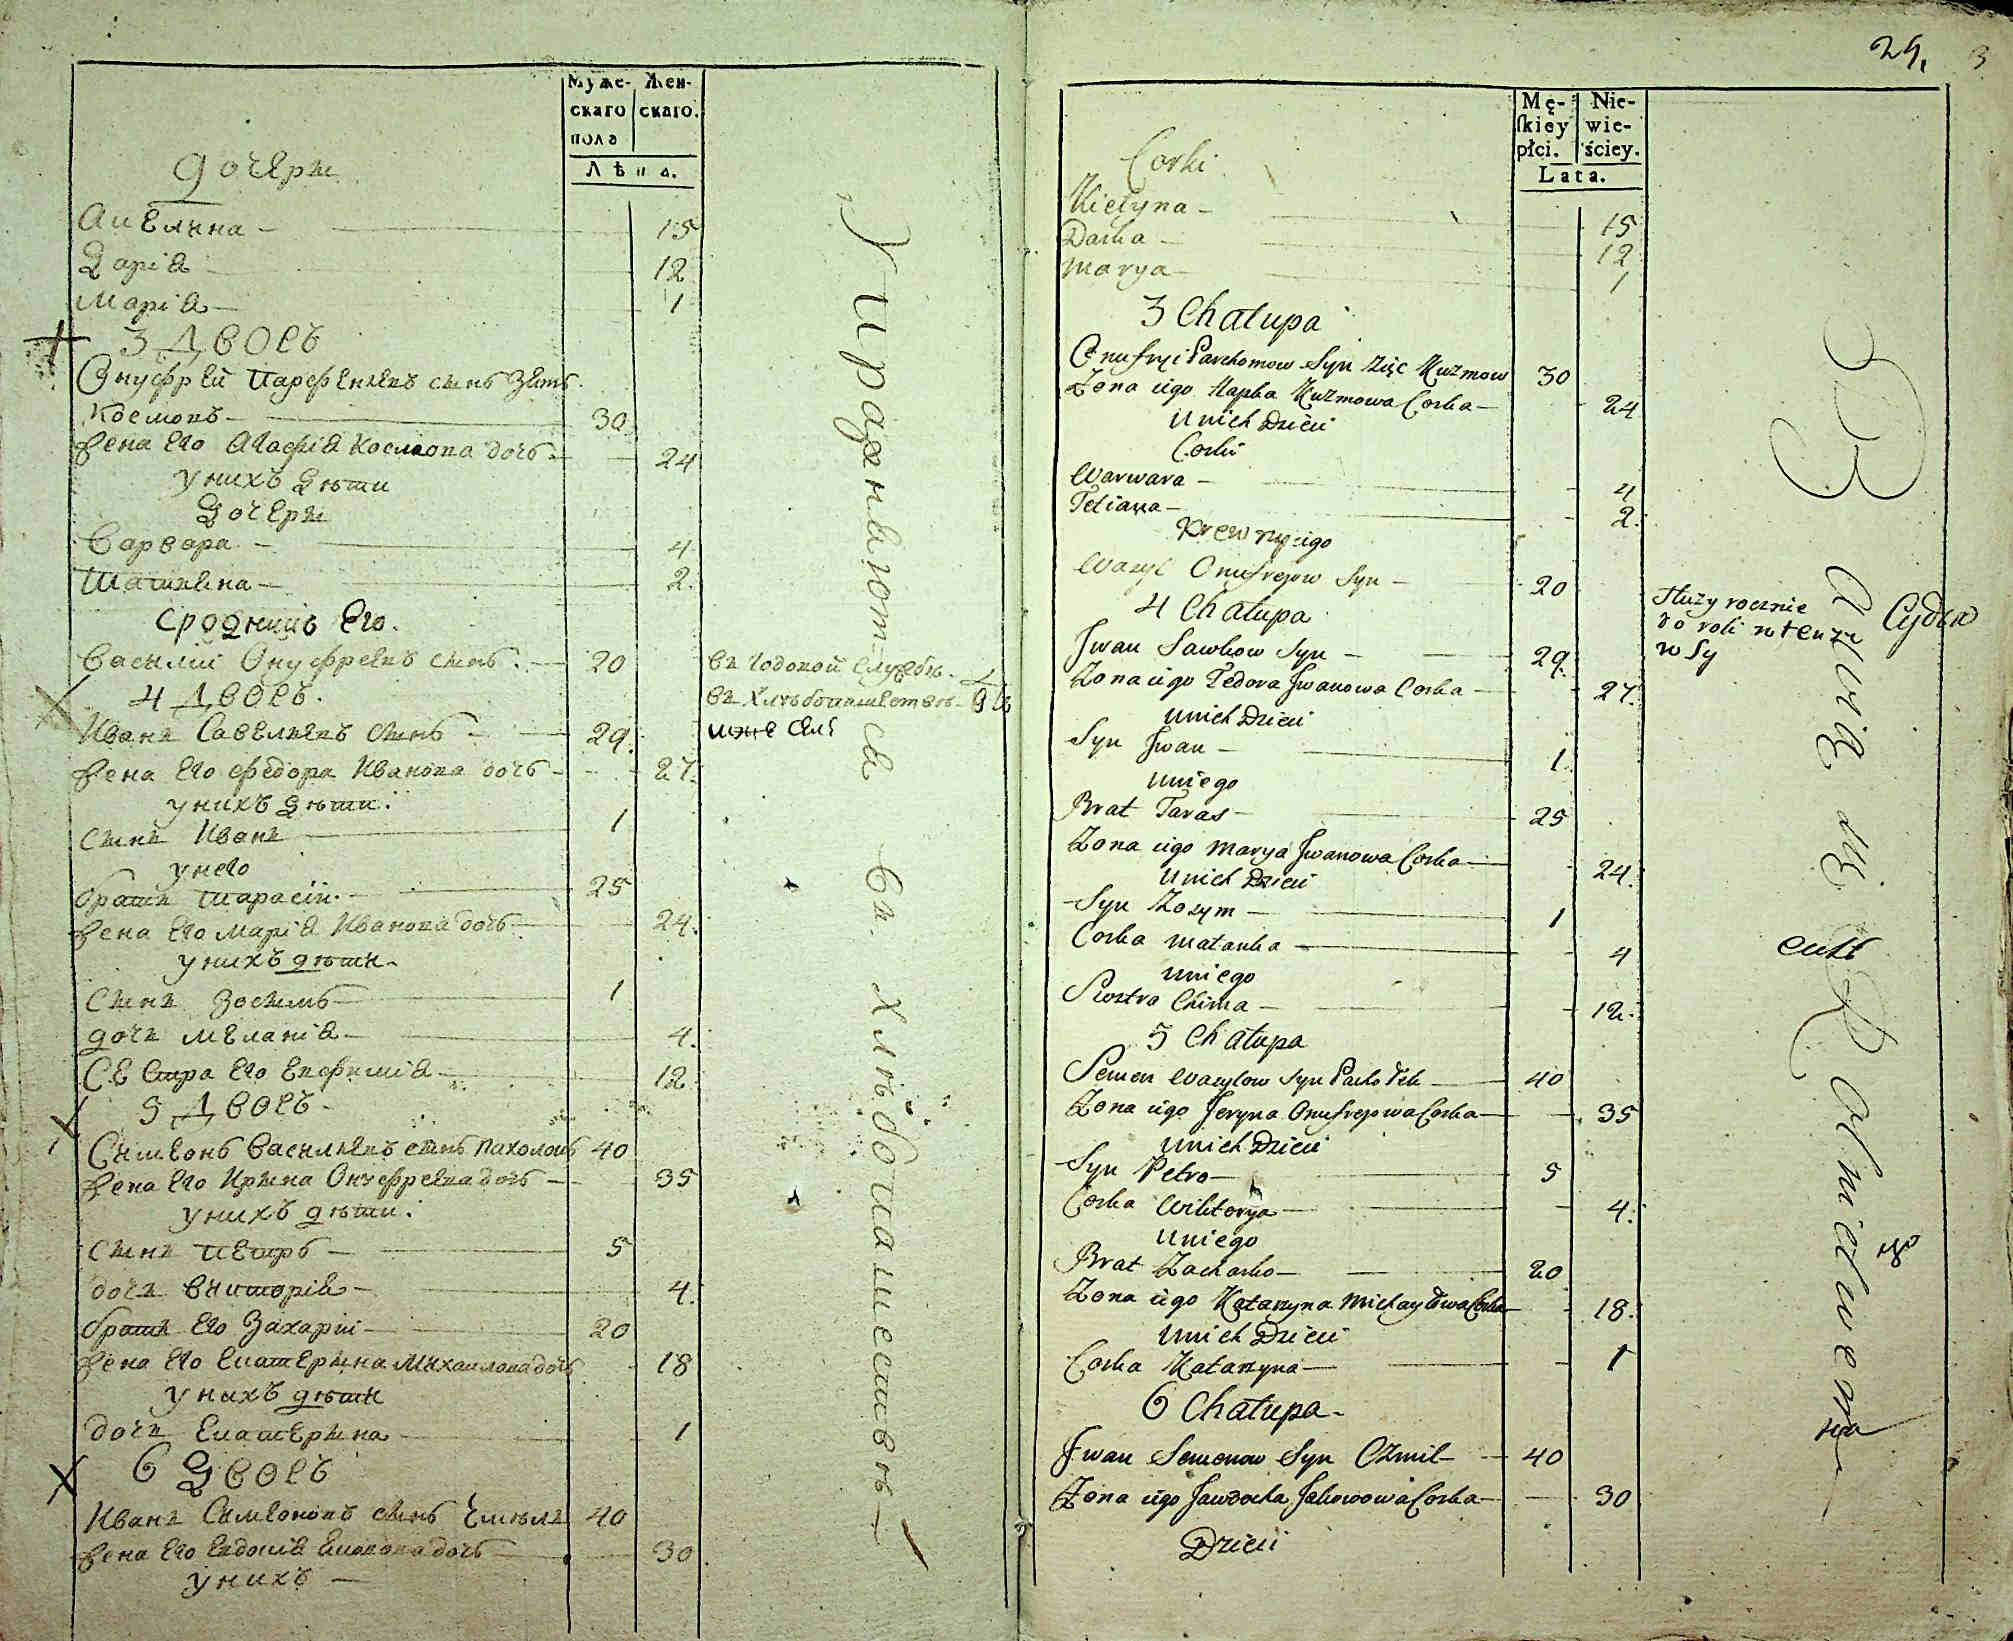 Муже-
скаго
пола
Жен-
скаго.
Лѣта.
дочери
Анелина - 15
Дарія 12
Марія - 1
3 Дворъ
Онуфрей Парфеневъ сынъ зять
Космовъ - 30
Жена Его Агафія Космова дочь - 24
у нихъ дѣти
Дочери
Варвара - 4
Татиана - 2.
Сродникъ Его.
Василий Онуфреевъ сынъ. 20
4 Дворъ.
Иванъ Савельевъ сынъ - 29.
Жена Его Федора Иванова дочь - 27.
у нихъ дѣти.
Сынъ Иванъ 1
у него
братъ Тарасий. - 25
Жена Его Марія Иванова дочь 24.
у нихъ дѣти -
Сынъ Зосимъ 1
дочь Меланія - 4.
Сестра Его Евфимія 12
5 Дворъ.
Симеонъ Васильевъ сынъ Пахолокъ 40
Жена Его Ирина Онуфреева дочь - 35
у нихъ дѣти.
Сынъ Петръ - 5
дочь Викторія - 4.
братъ Его Захарій 20
Жена Его Екатерина Михаилова дочь 18
у нихъ дѣти
дочь Екатерина 1
6 Дворъ
Иванъ Симеоновъ сынъ 40
Жена Его Евдокія дочь 30
у нихъ -
въ годовой службѣ.
въ хлѣбопашествѣ
Упражняются въ хлѣбопашествѣ
24. 3
Mę-
ſkiey
płci.
Nie-
wie-
ściey.
Lata.
Corki
Kielyna - 15
Darka - 12
Marya - 1
3 Chałupa
Onufryi Parchomow Syn Zięc Kuzmow 30
Zona iego Hapka Kuzmowa Corka - 24
U nich Dzieci
Corki
Warwara - 4
Teliana - 2.
Krewny iego
Wasyl Onufrejow Syn - 20
4 Chałupa
Jwan Sawkow Syn - 29.
Zona iego Fedora Jwanowa Corka - 27.
U nich Dzieci
Syn Jwan - 1
U niego
Brat Taras - 25
Zona iego Marya Jwanowa Corka - 24.
U nich Dzieci
Syn Zozym - 1
Corka Malanka - 4
U niego
Siostra Chima - 12.
5 Chałupa
Semen Wasylow Syn 40
Zona iego Jeryna Onufrejowa Corka - 35
U nich Dzieci
Syn Petro - 5
Corka Wiktorya 4.
U niego
Brat Zacharko - 20
Zona iego Katarzyna Michayłowa Corka 18.
U nich Dzieci
Corka Katarzyna - 1
6 Chałupa -
Jwan Semenow Syn Ozmil - 40
Zona iego Jawdocha Jakowowa Corka - 30
Dzieci
Służy rocznie
do roli
w Sy
Судья
Bawią się Rolnictwem